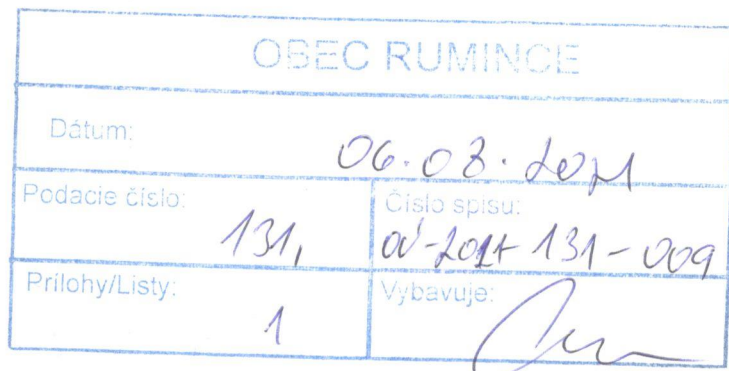 OBEC RUMINCE
Dátum:
06.08.2021
Podacie číslo:
131,
Číslo spisu:
131-009
Prílohy/Listy:
1
Vybavuje: